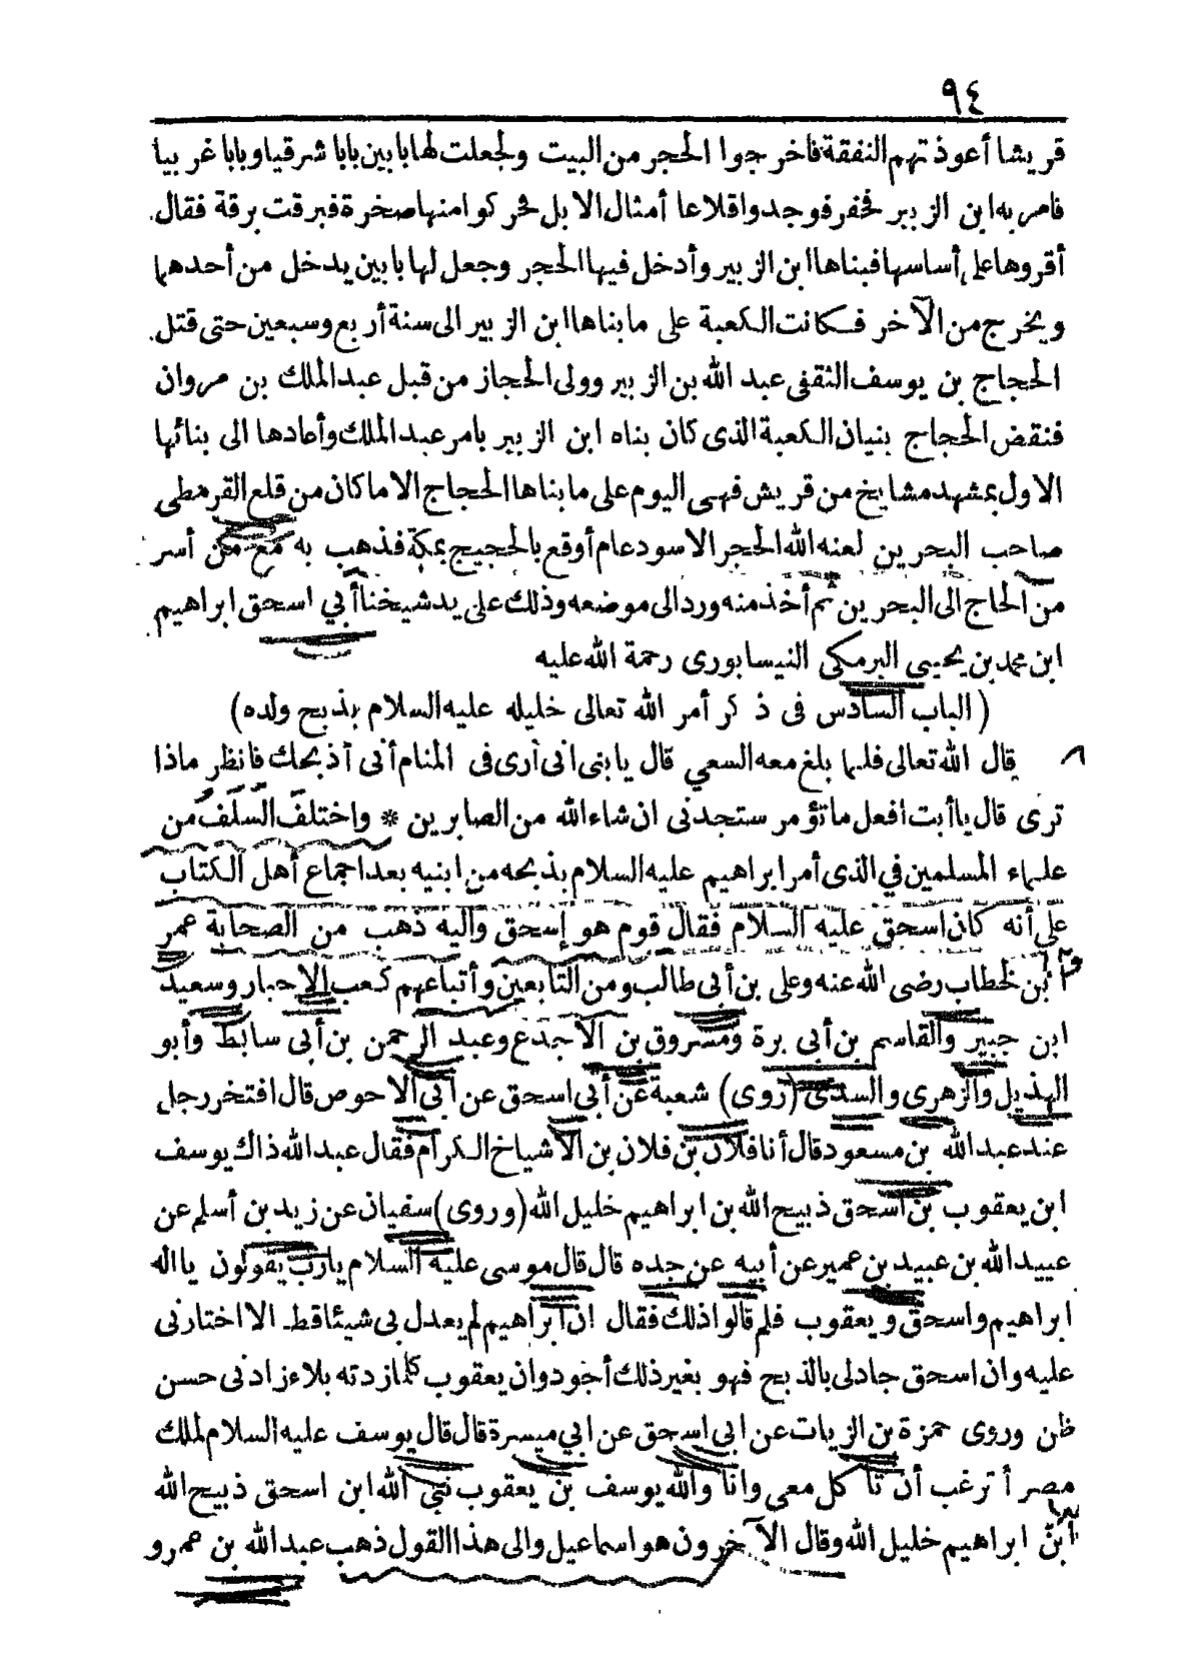 ٩٤
قريشا أعوذتهم النفقة فاخرجوا الحجر من البيت ولجعلت لها بابين بابا شرقيا وبابا غربيا
فامر به ابن الزبير فحفر فوجدوا قلاعا أمثال الابل فحركوا منها صخرة فبرقت برقة فقال
أقروها على أساسها فبناها ابن الزبير وأدخل فيها الحجر وجعل لها بابين يدخل من أحدهما
ويخرج من الآخر فكانت الكعبة على ما بناها ابن الزبير الى سنة أربع وسبعين حتى قتل
الحجاج بن يوسف الثقفى عبد الله بن الزبير وولى الحجاز من قبل عبد الملك بن مروان
فنقض الحجاج بنيان الكعبة الذى كان بناه ابن الزبير بامر عبد الملك وأعادها الى بنائها
الاول بمشهد مشايخ من قريش فهى اليوم على ما بناها الحجاج الا ما كان من قلع القرمطى
صاحب البحرين لعنه الله الحجر الاسود عام أوقع بالحجيج بمكة فذهب به مع من أسر
من الحاج الى البحرين ثم أخذ منه ورد الى موضعه وذلك على يد شيخنا أبي اسحق ابراهيم
ابن محمد بن يحيى البرمكى النيسابورى رحمة الله عليه
(الباب السادس فى ذكر أمر الله تعالى خليله عليه السلام بذبح ولده)
قال الله تعالى فلما بلغ معه السعي قال يا بنى انى أرى فى المنام أنى أذبحك فانظر ماذا
ترى قال يا أبت افعل ما تؤمر ستجدنى ان شاء الله من الصابرين * واختلف السلف من
علماء المسلمين في الذى أمر ابراهيم عليه السلام بذبحه من ابنيه بعد اجماع أهل الكتاب
على أنه كان اسحق عليه السلام فقال قوم هو إسحق واليه ذهب من الصحابة عمر
ابن الخطاب رضى الله عنه وعلى بن أبى طالب ومن التابعين وأتباعهم كعب الاحبار وسعيد
ابن جبير والقاسم بن أبى برة ومسروق بن الاجدع وعبد الرحمن بن أبى سابط وأبو
الهذيل والزهرى والسدى (روى) شعبة عن أبى اسحق عن أبى الاحوص قال افتخر رجل
عند عبد الله بن مسعود قال أنا فلان بن فلان بن الاشياخ الكرام فقال عبد الله ذاك يوسف
ابن يعقوب بن اسحق ذبيح الله بن ابراهيم خليل الله (وروى) سفيان عن زيد بن أسلم عن
عبيد الله بن عبيد بن عمير عن أبيه عن جده قال قال موسى عليه السلام يا رب يقولون يا اله
ابراهيم واسحق ويعقوب فلم قالوا ذلك فقال ان ابراهيم لم يعدل بى شيئا قط الا اختارنى
عليه وان اسحق جاد لى بالذبح فهو بغير ذلك أجود وان يعقوب كلما زدته بلاء زادنى حسن
ظن وروى حمزة بن الزيات عن ابى اسحق عن ابي ميسرة قال قال يوسف عليه السلام لملك
مصر أترغب أن تأكل معى وانا والله يوسف بن يعقوب نبي الله ابن اسحق ذبيح الله
ابن ابراهيم خليل الله وقال الآخرون هو اسماعيل والى هذا القول ذهب عبد الله بن عمرو